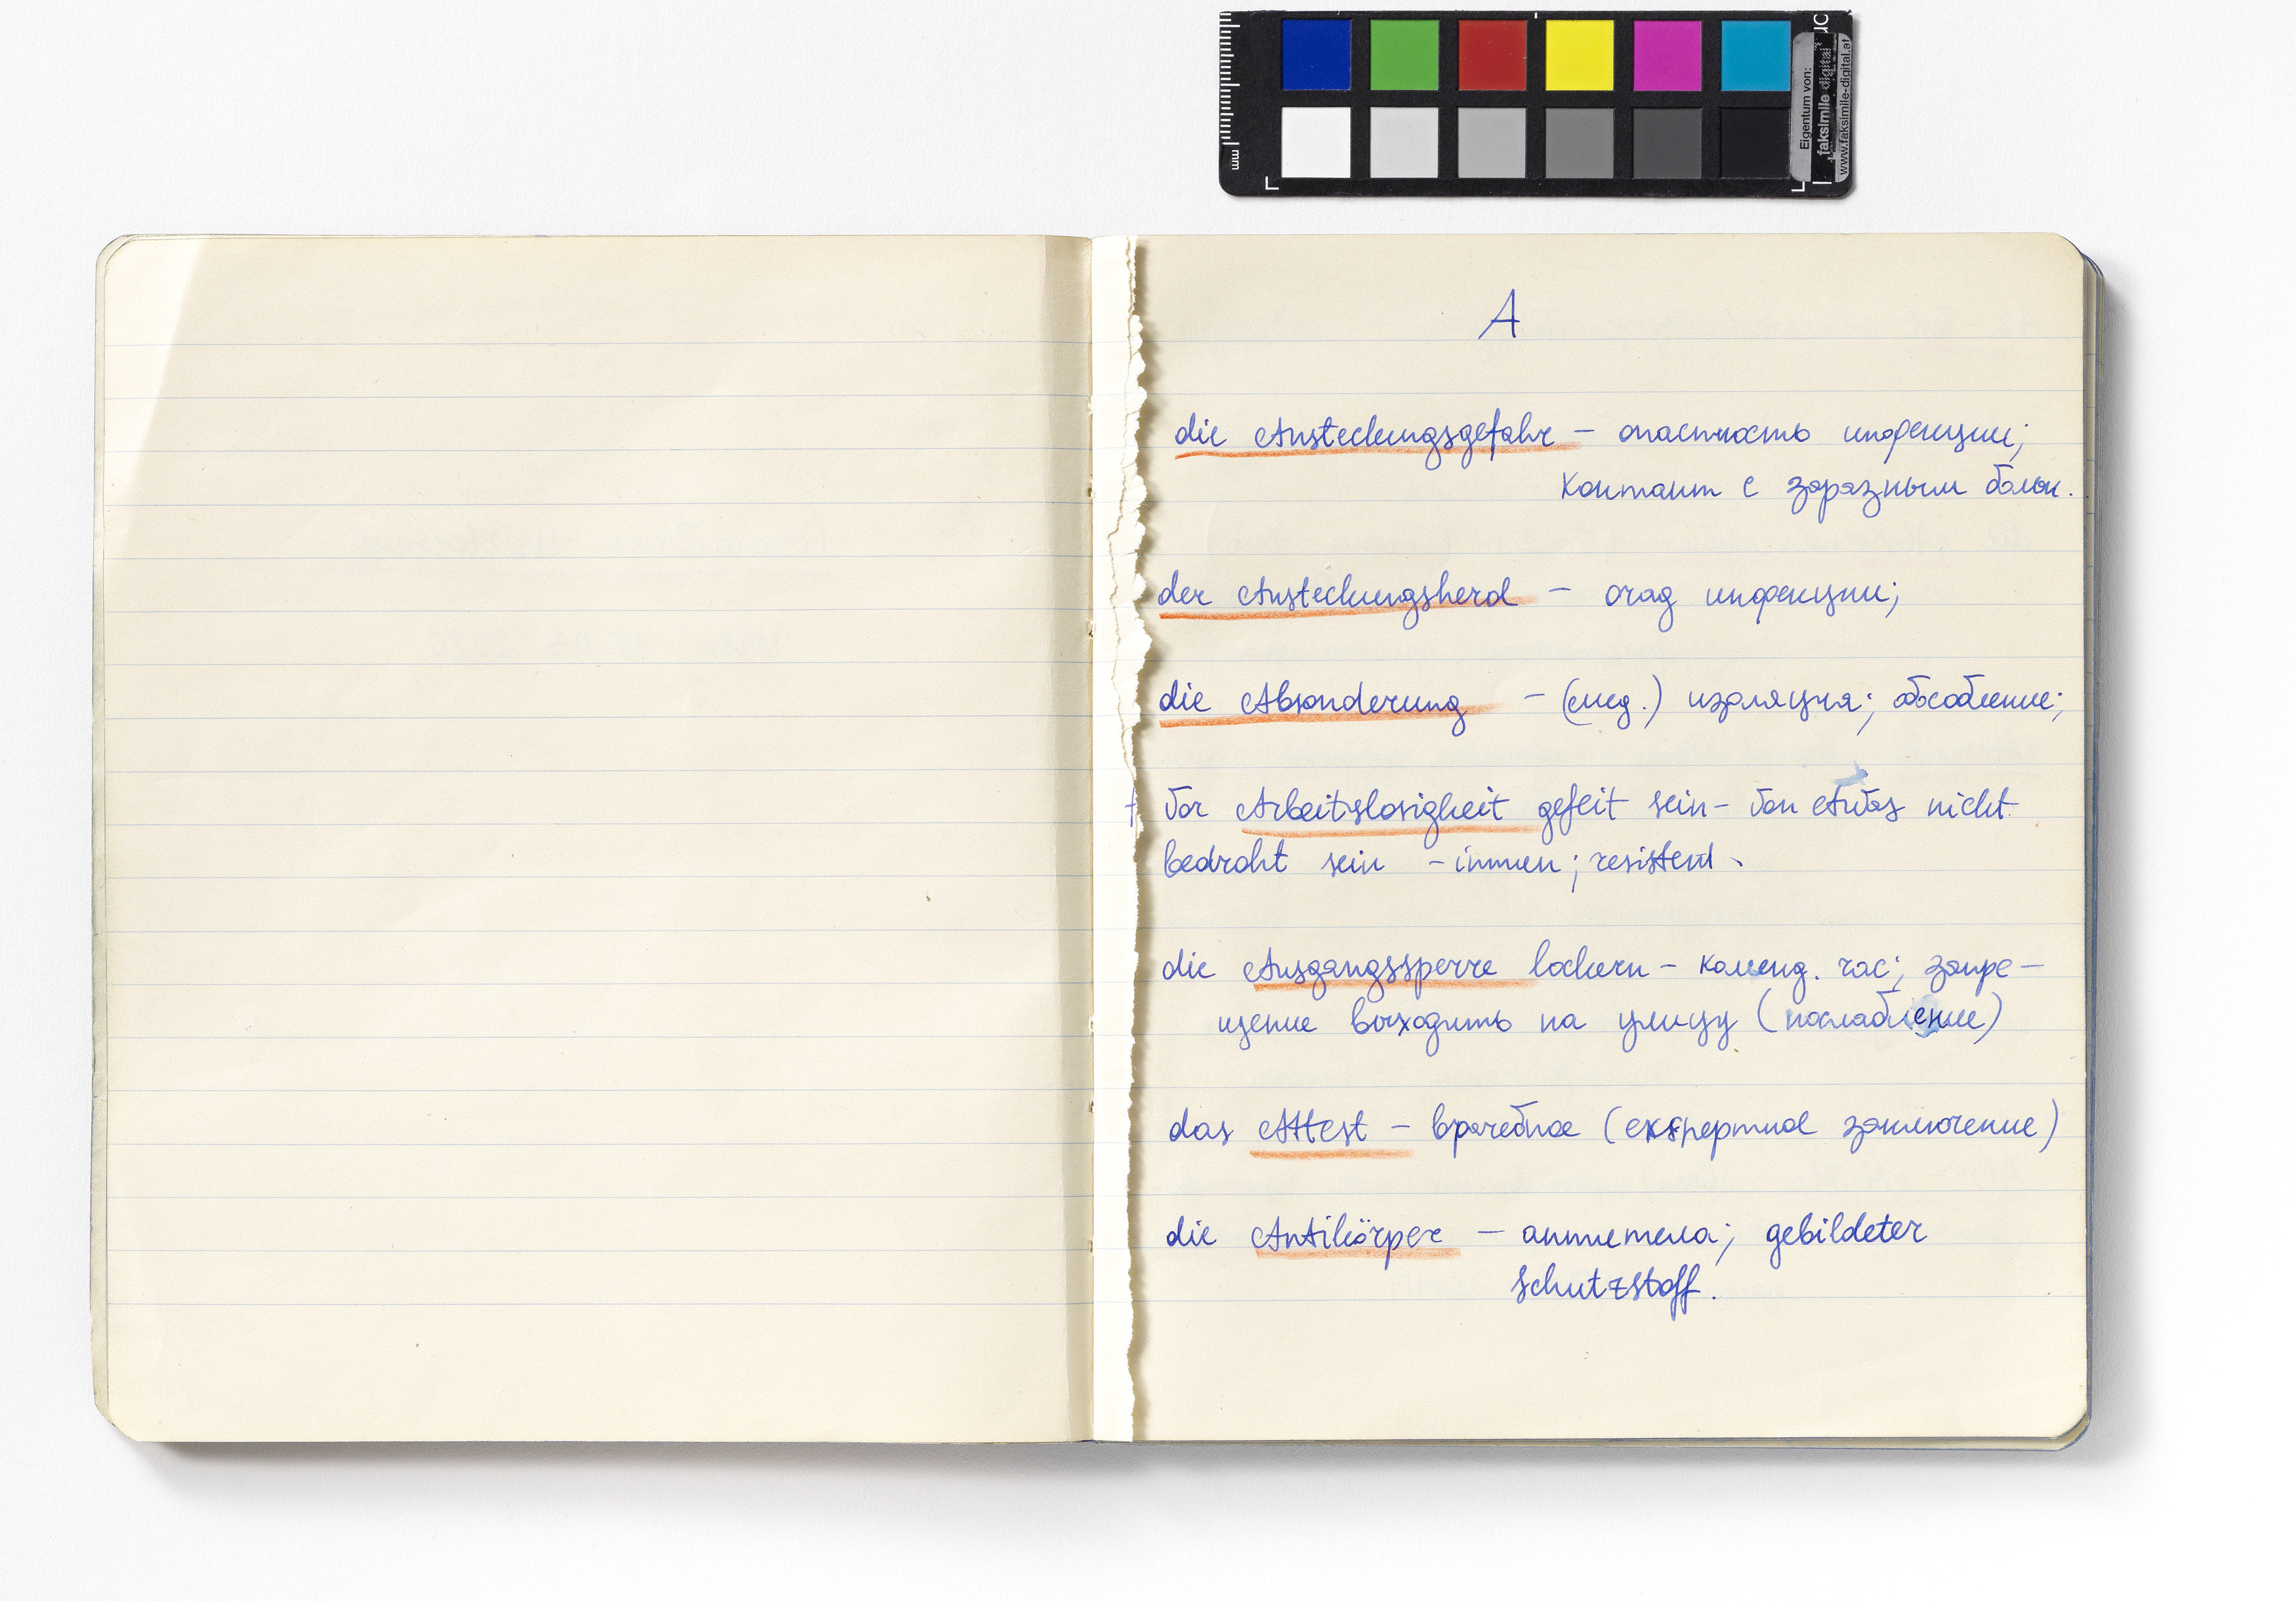 mm
Eigentum von:
faksimile digital
www.faksimile-digital.at
A
die Ansteckungsgefahr – опасность инфекции;
контакт с заразным больн.
der Ansteckungsherd – очаг инфекции;
die Absonderung – (мед.) изоляция; обособление;
vor Arbeitslosigkeit gefeit sein – von etwas nicht
bedroht sein – immun; resistent
die Ausgangssperre lockern – коменд. час; запре–
щение выходить на улицу (послабление)
das Attest – врачебное (експертное заключение)
die Antikörper – антитела; gebildeter
Schutzstoff.